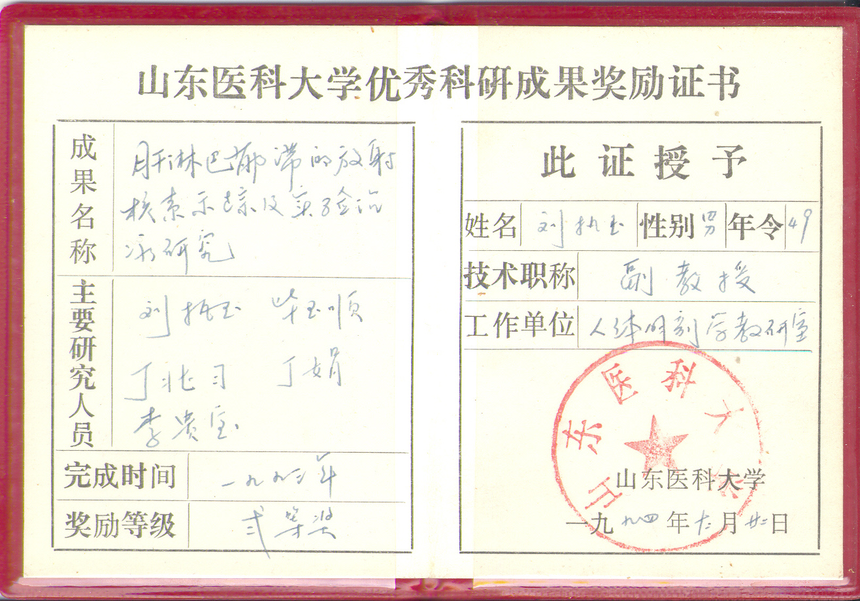 山东医科大学优秀科研成果奖励证书
成果名称
肝淋巴郁滞的放射
核素示踪及实验治
疗研究
主要研究人员
刘执玉 毕玉顺
丁兆习 丁娟
李贵宝
完成时间 一九九三年
奖励等级 弍等奖
此证授予
姓名 刘执玉 性别 男 年令 49
技术职称 副教授
工作单位 人体解剖学教研室
山东医科大学
山东医科大学
一九九四年 月廿日